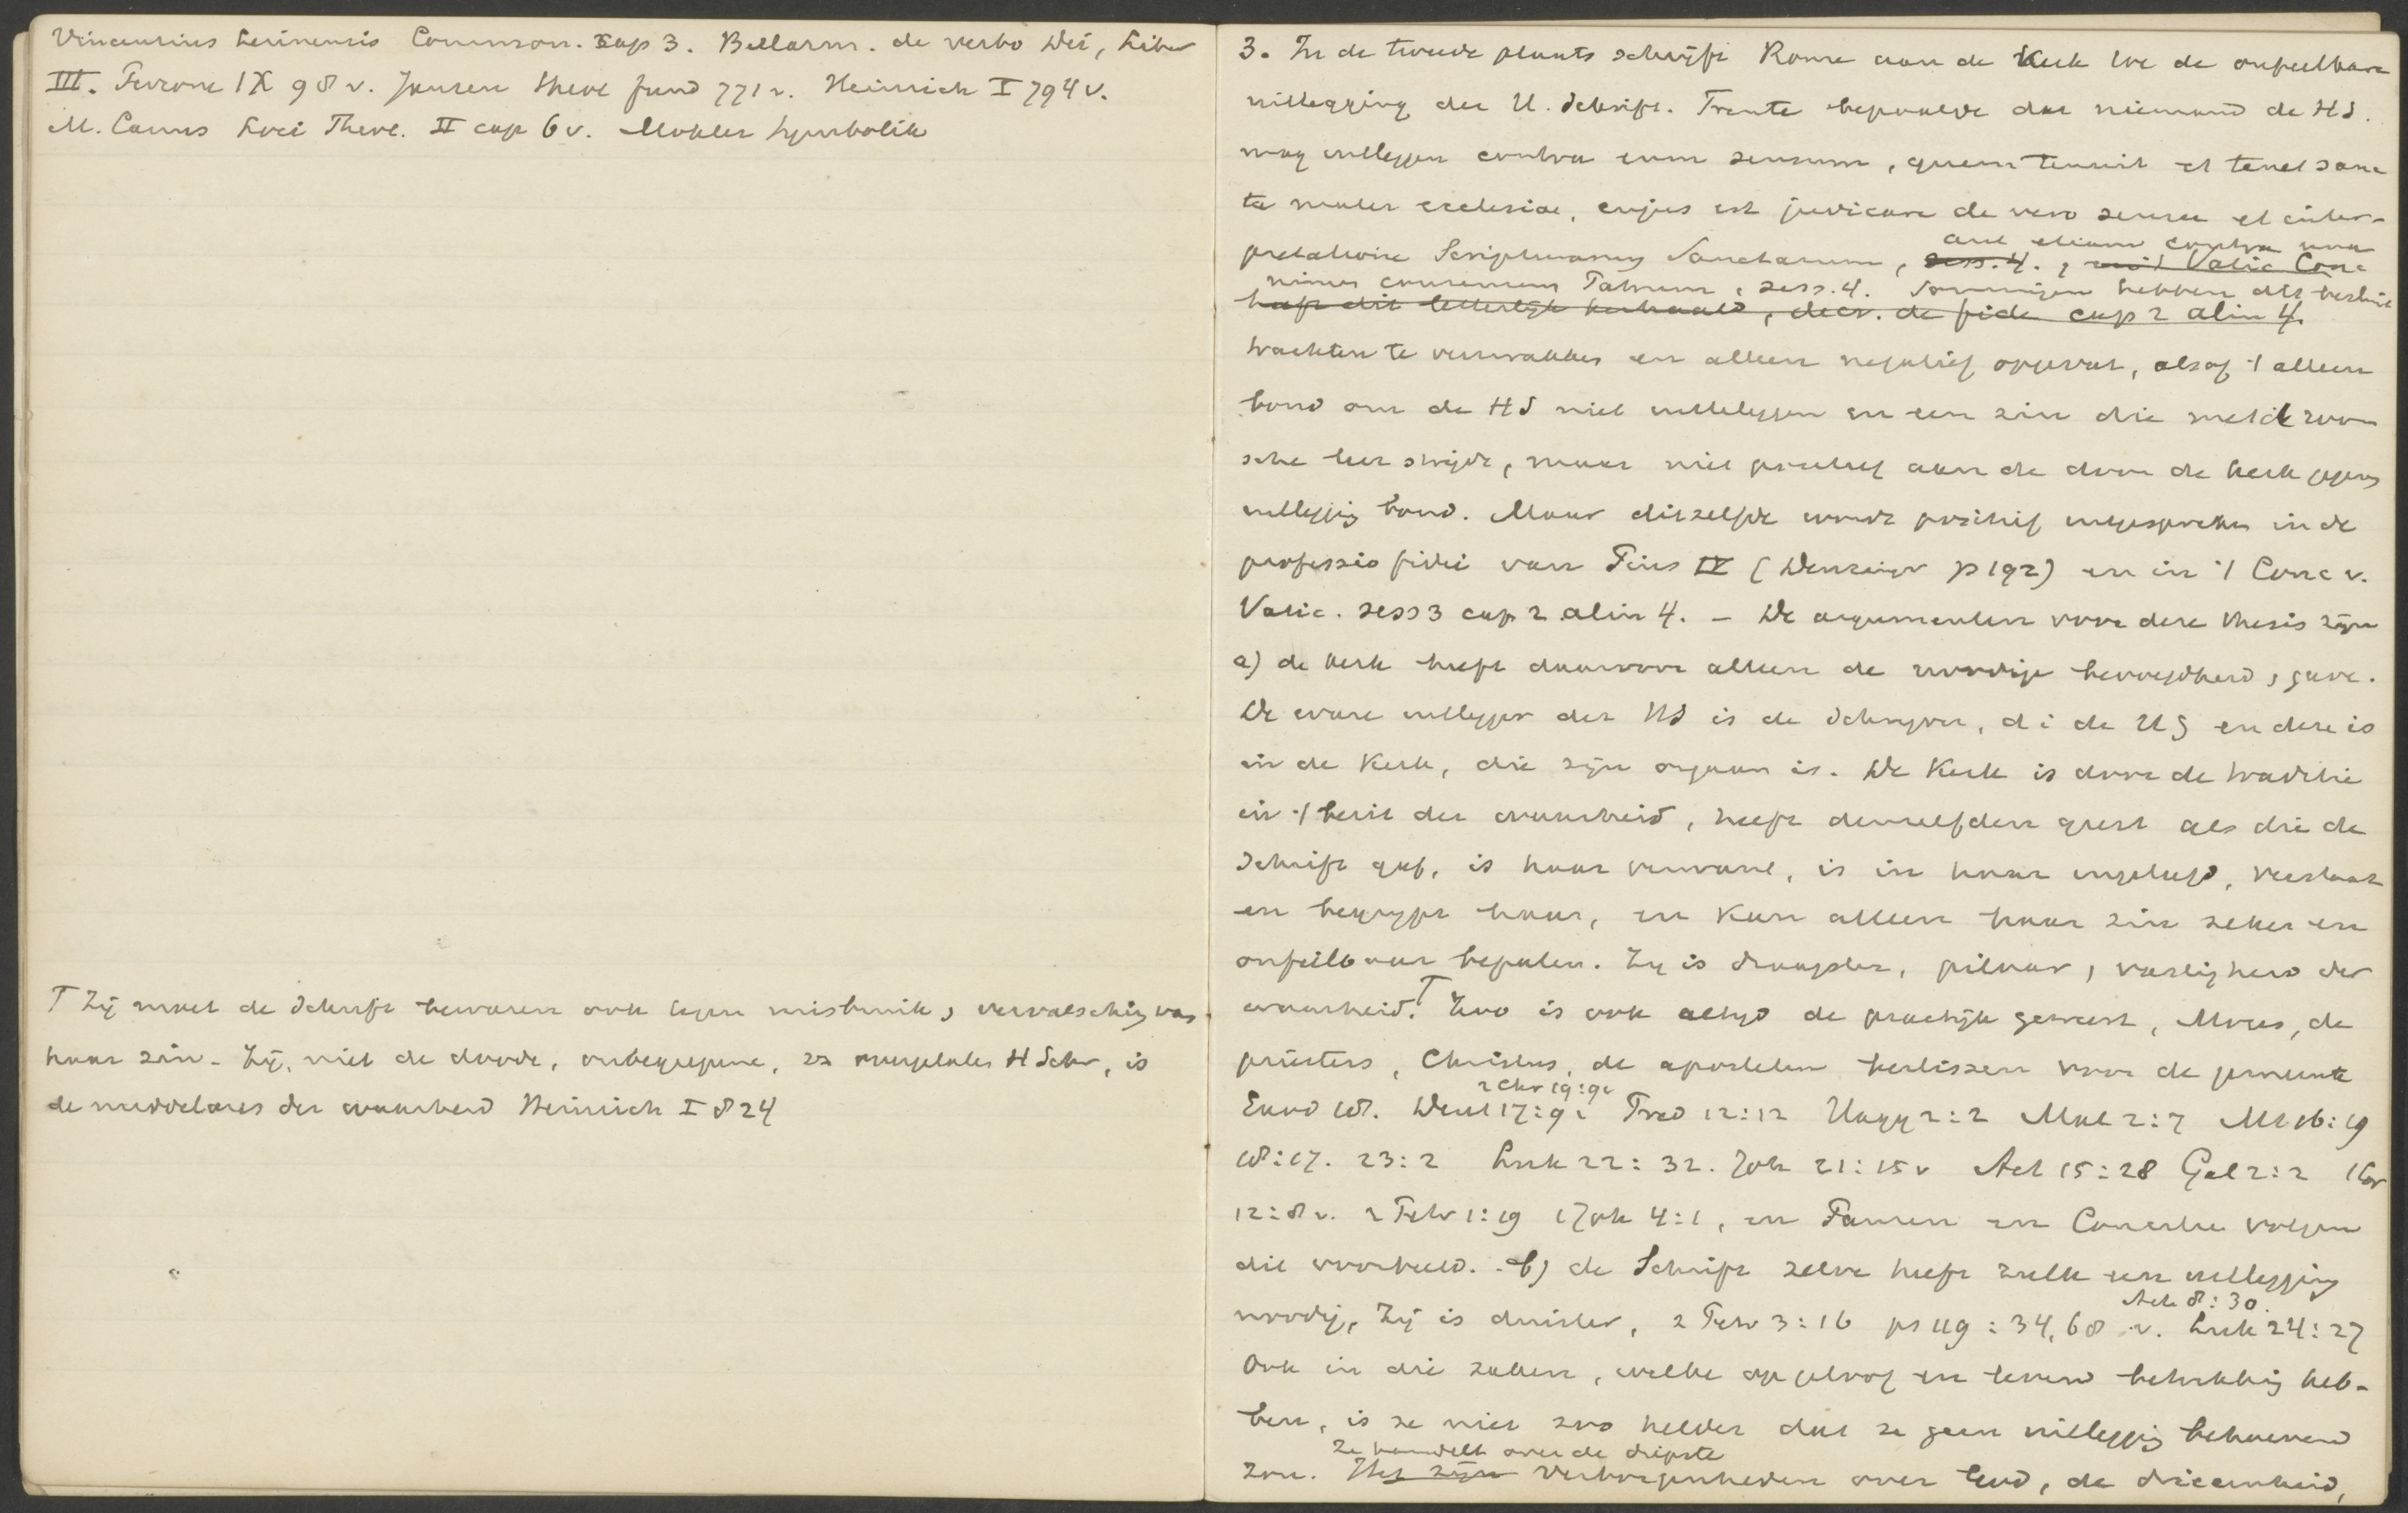 Vincentius Lerinensis Common. cap 3. Bellarm. de verbo Dei, Liber
III. Perrone IX 98 v. Jansen theol fund 771 v. Heinrich I 794 v.
M. Canus Loci Theol. II cap 6 v. Mohler Symbolik
T Zij moet de Schrift bewaren ook tegen misbruik, vervalsching van
haar zin. Zij, niet de doode, onbegrepene, H Schr, is
de middelares der waarheid Heinrich I 824
3. In de tweede plaats schrijft Rome aan de Kerk toe de onfeilbare
uitlegging der H. Schrift. Trente bepaalde dat niemand de HS.
mag uitleggen contra eum sensum, quem tenuit et tenet sanc
ta mater ecclesia, cujus est judicare de vero sensu et inter-
pretatione Scripturarum Sanctarum, sess. 4., Vatic Conc
aut etiam contra una
nimem consensum Patrum, sess. 4. Sommigen hebben dit besluit
heeft dit letterlijk herhaald, decr. de fide cap 2 alin 4.
trachten te verzwakken en alleen negatief opgevat, alsof 't alleen
bond om de HS niet uitteleggen in een zin die met de room
sche leer strijdt, maar niet positief aan de door de kerk gegeven
uitlegging bond. Maar ditzelfde wordt positief uitgesproken in de
professio fidei van Pius IV (Denzinger p 192) en in 't Conc v.
Vatic. sess 3 cap 2 alin 4. - De argumenten voor deze thesis zijn
a) de kerk heeft daarvoor alleen de noodige bevoegdheid, gave.
De ware uitlegger der HS is de Schrijver, d i de HG en deze is
in de Kerk, die zijn orgaan is. De Kerk is door de traditie
in 't bezit der waarheid, heeft denzelfden geest als die de
Schrift gaf, is haar verwant, is in haar ingeleefd, verstaat
en begrijpt haar, en kan alleen haar zin zeker en
onfeilbaar bepalen. Zij is draagster, pilaar, vastigheid der
waarheid. T Zoo is ook altijd de practijk geweest, Mozes, de
priesters, Christus, de apostelen beslissen voor de gemeente
2 Chr 19:9v
Exod 18. Deut 17:9v Pred 12:12 Hagg 2:2 Mal 2:7 Mt 16:19
18:17. 23:2 Luk 22:32. Joh 21:15 v Act 15:28 Gal 2:2 1 Cor
12:8 v. 2 Petr 1:19 1 Joh 4:1, en Pausen en Concilies volgen
dit voorbeeld. - b) de Schrift zelve heeft zulk een uitlegging
noodig, Zij is duister, 2 Petr 3:16 ps 119:34,68 v. Luk 24:27
Act 8:30.
Ook in die zaken, welke op geloof en leven betrekking heb-
ben, is ze niet zoo helder dat ze geen uitlegging behoeven
Ze handelt over de diepste
zou. Het zijn verborgenheden over God, de drieeenheid,